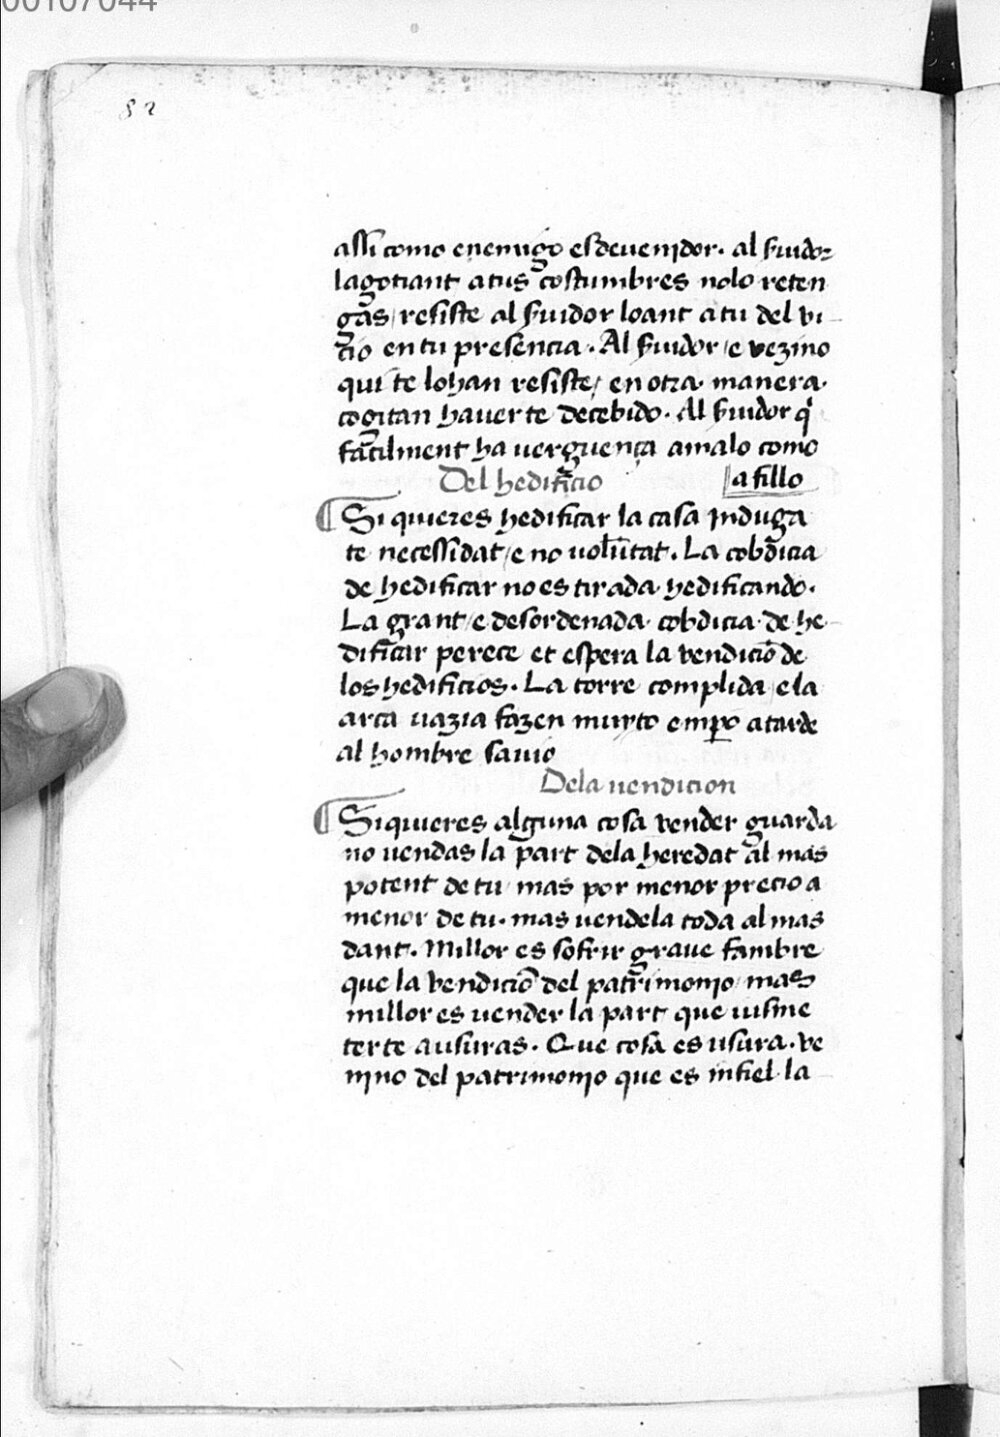 00107044
82
assi como enemigo esdevenidor. al s̃uidor
lagotiant atus costumbres nolo reten
gas / resiste al s̃uidor loant atu del vi
cio entu presencia. Al s̃uidor / e vezino
qui te lohan resiste / en otra manera
cogitan haver te decebido. Al s̃uidor q̃
facilment ha uerguença amalo como
a fillo
Del hedificio
Si quieres hedificar la casa induga
te necessidat / e no volũtat. La cobdicia
de hedificar no es tirada hedificando.
La grant / e desordenada cobdicia de he
dificar perece et espera la vendiciõ de
los hedificios. La torre complida / e la
arca uazia fazen muyto empo atarde
al hombre savio
Dela uendicion
Si quieres alguna cosa vender guarda
no uendas la part dela heredat al mas
potent de tu / mas por menor precio a
menor de tu. mas uendela toda al mas
dant. Millor es sofrir grave fambre
que la vendiciõ del patrimonio / mas
millor es uender la part que iusme
ter te a usuras. Que cosa es usura. ve
nino del patrimonio que es infiel la